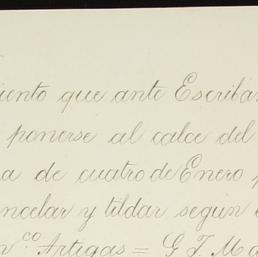 iento que ante Escriba
ponerse al calce del
a de cuatro de Enero
ncelar y tildar segun
n co. Artigas = G. T. Ma